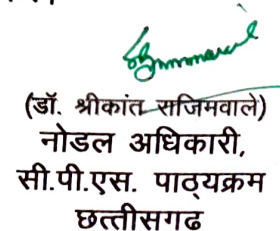 (डॉ. श्रीकांत राजिमवाले)
नोडल अधिकारी,
सी.पी.एस. पाठ्यक्रम
छत्तीसगढ